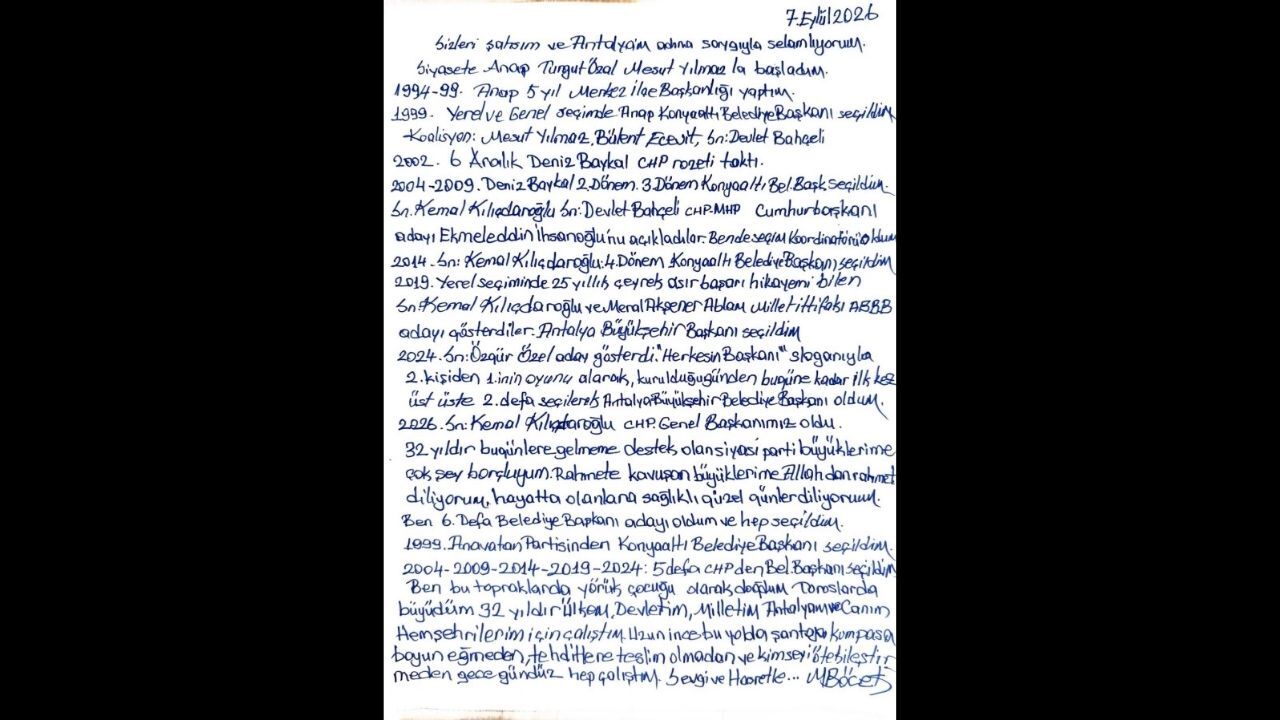 7.Eylül 2026
Sizleri şahsım ve Antalya'm adına saygıyla selamlıyorum.
Siyasete Anap Turgut Özal Mesut Yılmaz'la başladım.
1994-99. Anap 5 yıl Merkez ilçe Başkanlığı yaptım.
1999. Yerel ve Genel seçimde Anap Konyaaltı Belediye Başkanı seçildim
Koalisyon: Mesut Yılmaz, Bülent Ecevit, Sn: Devlet Bahçeli
2002. 6 Aralık Deniz Baykal CHP rozeti taktı.
2004-2009. Deniz Baykal 2.Dönem. 3.Dönem Konyaaltı Bel.Başk.seçildim.
Sn. Kemal Kılıçdaroğlu Sn: Devlet Bahçeli CHP-MHP Cumhurbaşkanı
adayı Ekmeleddin İhsanoğlu'nu açıkladılar. Bende seçim Koordinatörü oldum
2014. Sn: Kemal Kılıçdaroğlu: 4.Dönem Konyaaltı Belediye Başkanı seçildim
2019. Yerel seçiminde 25 yıllık çeyrek asır başarı hikayemi bilen
Sn. Kemal Kılıçdaroğlu ve Meral Akşener Ablam Millet ittifakı ABBB
adayı gösterdiler. Antalya Büyükşehir Başkanı seçildim
2024. Sn: Özgür Özel aday gösterdi. "Herkesin Başkanı" sloganıyla
2. kişiden 1.inin oyunu alarak, kurulduğugünden bugüne kadar ilk kez
üst üste 2. defa seçilerek Antalya Büyükşehir Belediye Başkanı oldum.
2026. Sn: Kemal Kılıçdaroğlu CHP. Genel Başkanımız oldu.
32 yıldır bugünlere gelmeme destek olan siyasi parti büyüklerime
çok şey borçluyum. Rahmete kavuşan büyüklerime Allah dan rahmet
diliyorum, hayatta olanlara sağlıklı güzel günler diliyorum.
Ben 6. Defa Belediye Başkanı adayı oldum ve hep seçildim.
1999. Anavatan Partisinden Konyaaltı Belediye Başkanı seçildim.
2004-2009-2014-2019-2024: 5 defa CHP den Bel. Başkanı seçildim
Ben bu topraklarda yörük çocuğu olarak doğdum Toroslarda
büyüdüm 32 yıldır Ülkem, Devletim, Milletim Antalyam ve Canım
Hemşehrilerim için çalıştım. Uzun ince bu yolda şantaja kumpasa
boyun eğmeden, tehditlere teslim olmadan ve kimseyi ötebileştir
meden gece gündüz hep çalıştım. Sevgi ve Hasretle... MBöcek